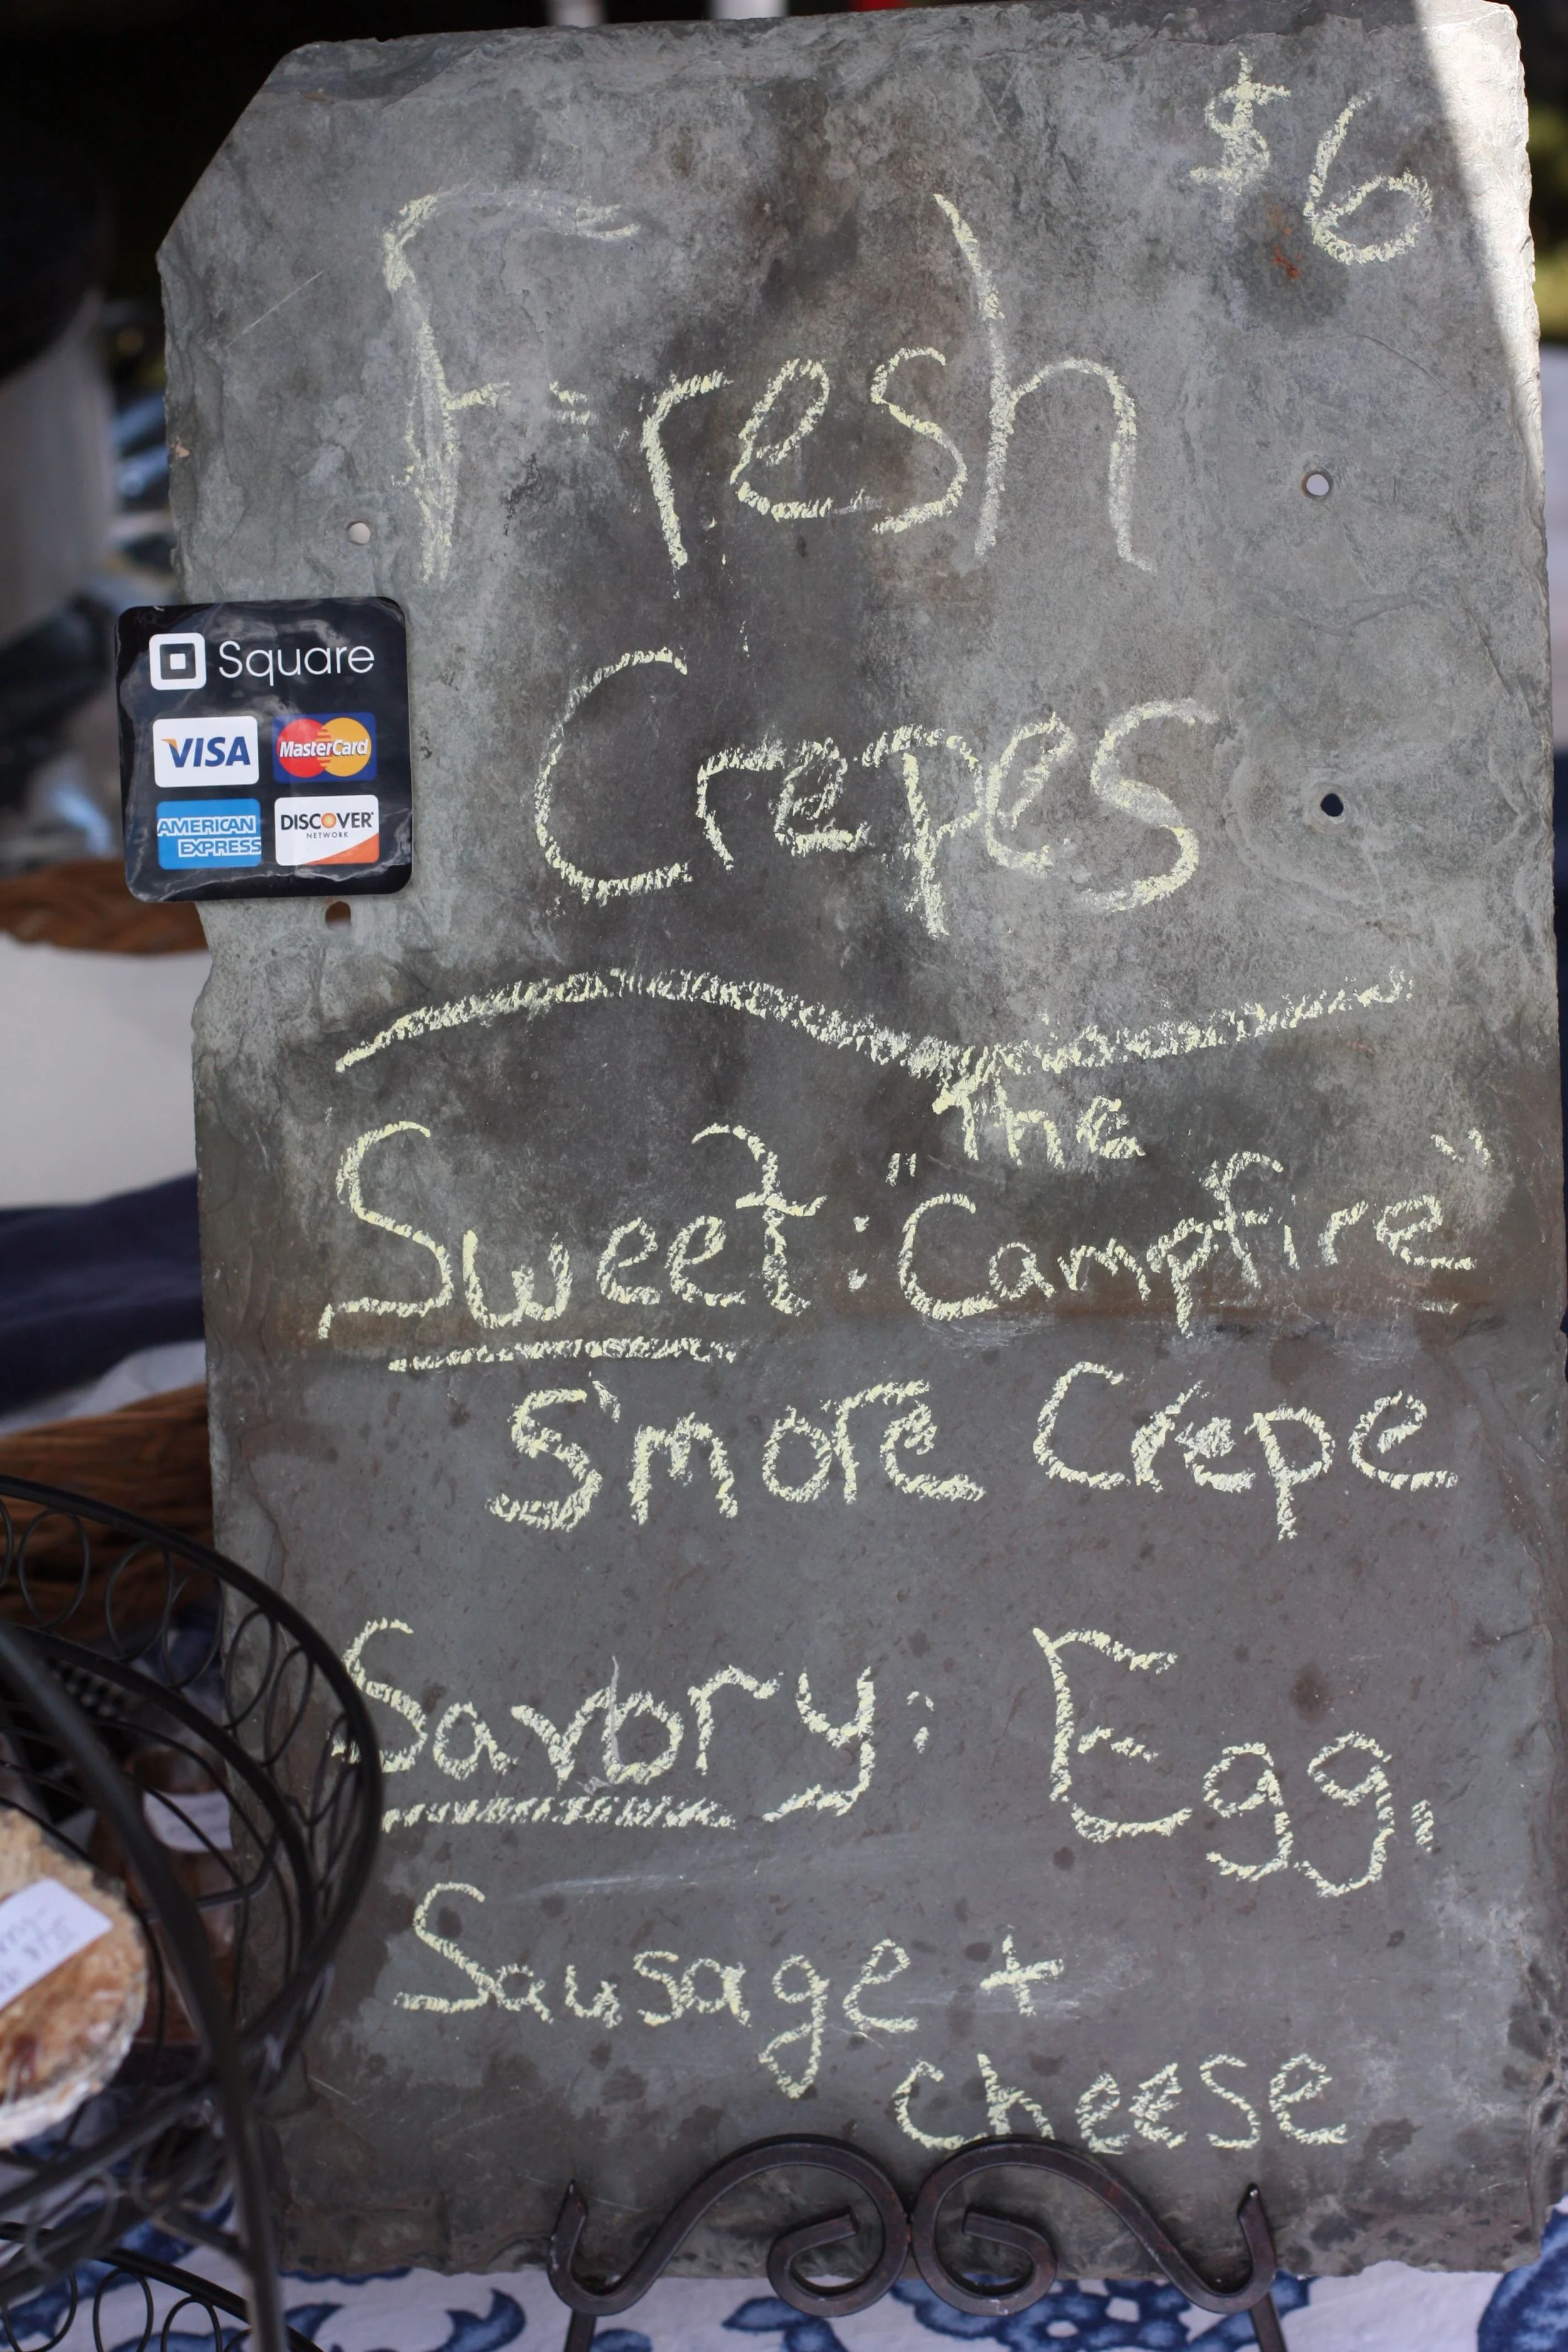 $6
Fresh
Crepes
Square
VISA MasterCard
AMERICAN EXPRESS DISCOVER NETWORK
the
Sweet: "Campfire"
S'more Crepe
Savory: Egg,
Sausage +
cheese